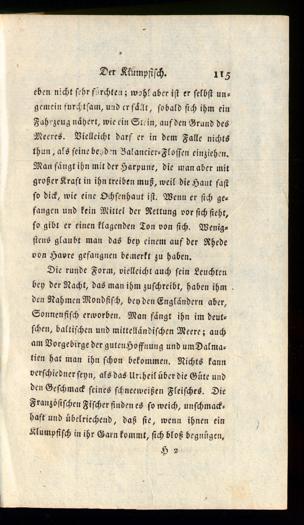 Der Klumpfisch. 115
eben nicht sehr fürchten; wohl aber ist er selbst un-
gemein furchtsam, und er fällt, sobald sich ihm ein
Fahrzeug nähert, wie ein Stein, auf den Grund des
Meeres. Vielleicht darf er in dem Falle nichts
thun, als seine beyden Balancier-Flossen einziehen.
Man fängt ihn mit der Harpune, die man aber mit
großer Kraft in ihn treiben muß, weil die Haut fast
so dick, wie eine Ochsenhaut ist. Wenn er sich ge-
fangen und kein Mittel der Rettung vor sich sieht,
so gibt er einen klagenden Ton von sich. Wenig-
stens glaubt man das bey einem auf der Rhede
von Havre gefangnen bemerkt zu haben.
Die runde Form, vielleicht auch sein Leuchten
bey der Nacht, das man ihm zuschreibt, haben ihm
den Nahmen Mondfisch, bey den Engländern aber,
Sonnenfisch erworben. Man fängt ihn im deut-
schen, baltischen und mittelländischen Meere; auch
am Vorgebirge der guten Hoffnung und um Dalma-
tien hat man ihn schon bekommen. Nichts kann
verschiedner seyn, als das Urtheil über die Güte und
den Geschmack seines schneeweißen Fleisches. Die
Französischen Fischer finden es so weich, unschmack-
haft und übelriechend, daß sie, wenn ihnen ein
Klumpfisch in ihr Garn kommt, sich bloß begnügen,
H 2